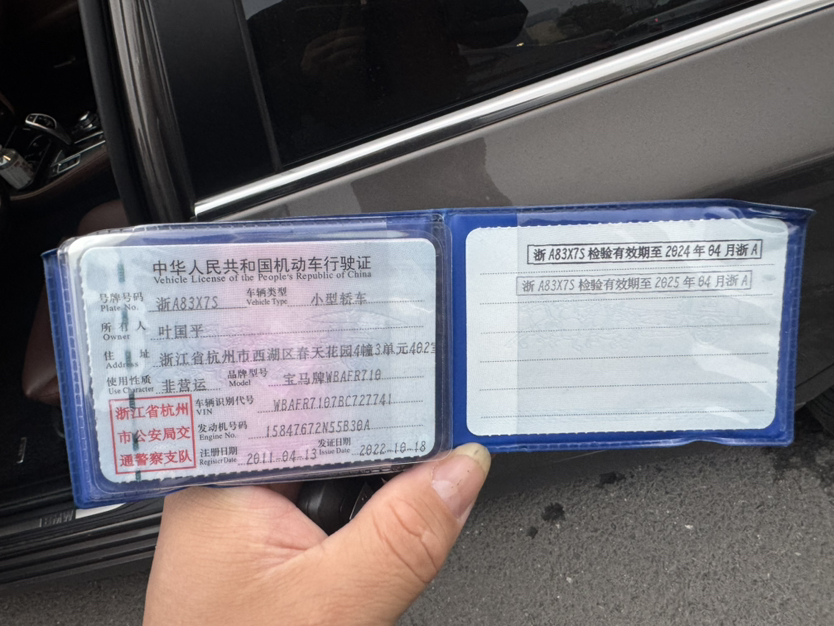 中华人民共和国机动车行驶证
Vehicle License of the People's Republic of China
号牌号码 浙A83X7S 车辆类型 小型轿车
Plate No. Vehicle Type
所有人 叶国平
Owner
住址 浙江省杭州市西湖区春天花园4幢3单元402室
Address
使用性质 非营运 品牌型号 宝马牌WBAFR710
Use Character Model
浙江省杭州
市公安局交
通警察支队
车辆识别代号 WBAFR7107BC727741
VIN
发动机号码 15847672N55B30A
Engine No.
注册日期 2011-04-13 发证日期 2022-10-18
Register Date Issue Date
浙A83X7S检验有效期至2024年04月浙A
浙A83X7S检验有效期至2025年04月浙A